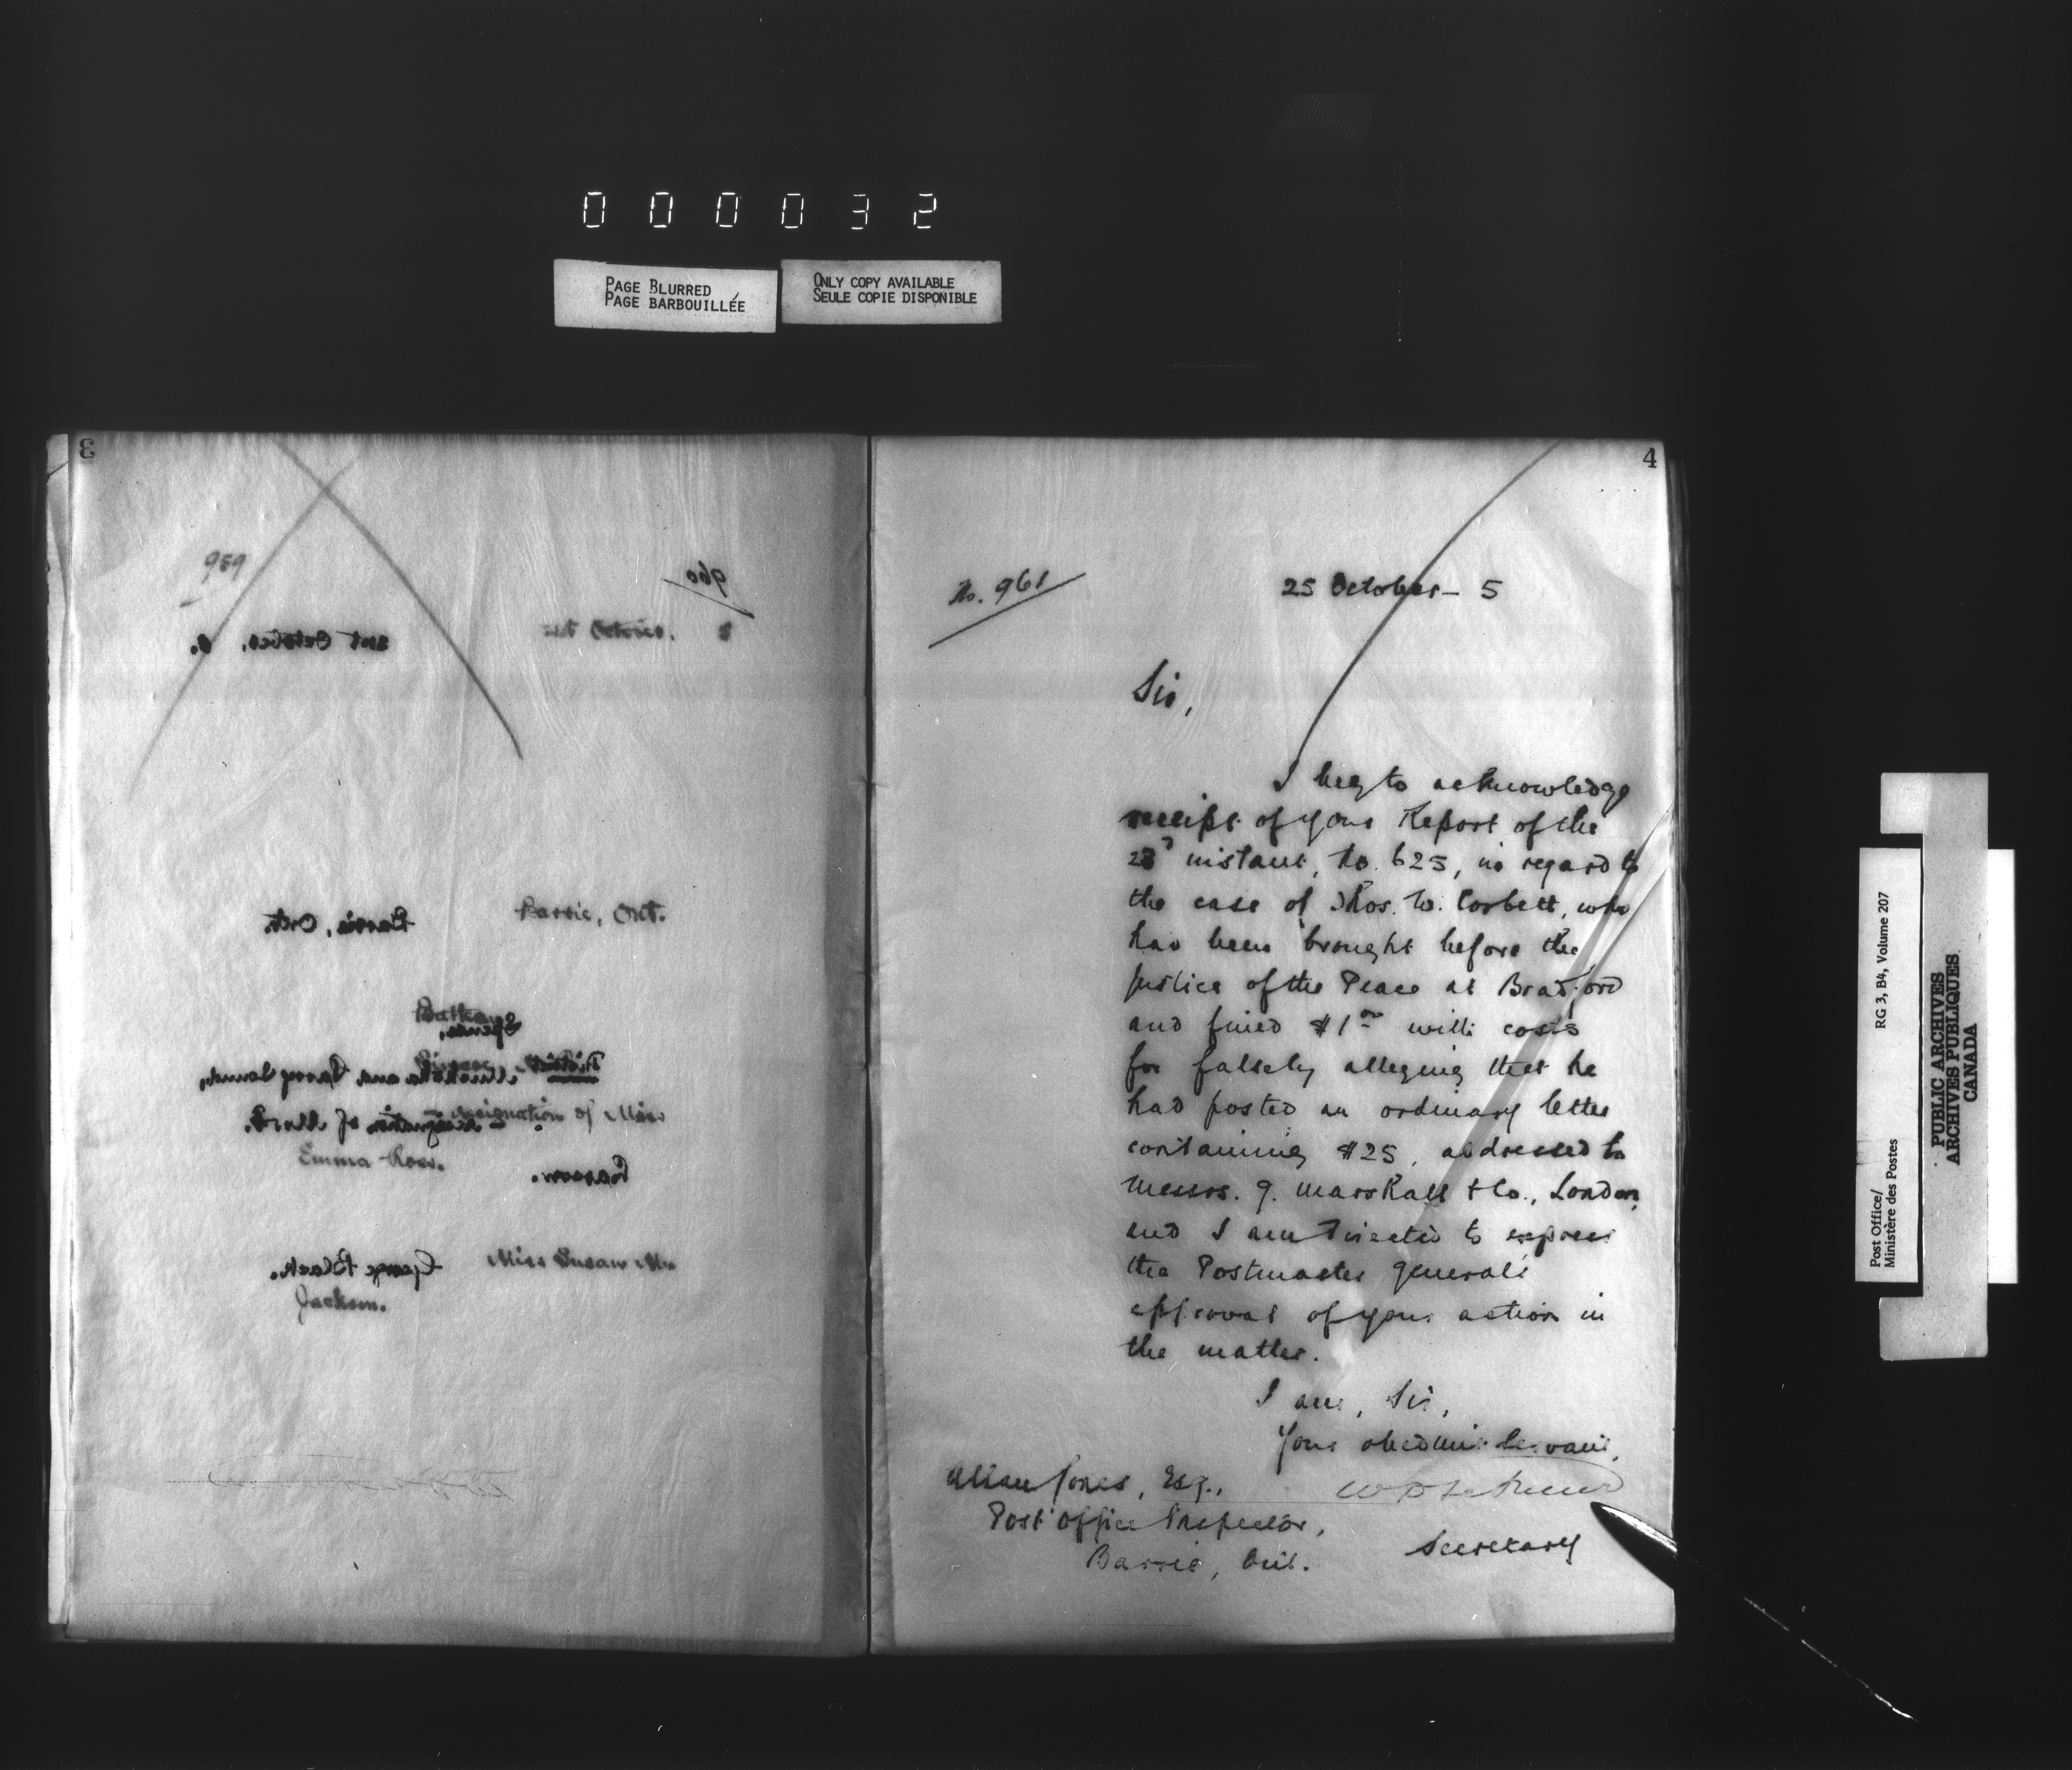 000032
PAGE BLURRED
PAGE BARBOUILLÉE
ONLY COPY AVAILABLE
SEULE COPIE DISPONIBLE
3
959
960
21st October, 5.
21st October. 5
Barrie, Ont.
Barrie, Ont.
Spence,
District
Muskoka and Parry Sound,
Resignation of
resignation of Miss
Emma Ross.
George Black.
Miss Susan
Jackson.
4
No. 961
25 October - 5
Sir,
I beg to acknowledge
receipt of your Report of the
23d instant, No. 625, in regard to
the case of Thos. W. Corbett, who
has been brought before the
Justice of the Peace at Bradford
and fined $1 00 with costs
for falsely alleging that he
had posted an ordinary letter
containing $25, addressed to
Messrs. G. Marshall & Co., London,
and I am directed to express
the Postmaster General's
approval of your action in
the matter.
I am, Sir,
Your obedient servant,
Secretary
Allan Jones, Esq.,
Post Office Inspector,
Barrie, Ont.
Post Office/
Ministère des Postes
RG 3, B4, Volume 207
PUBLIC ARCHIVES
ARCHIVES PUBLIQUES
CANADA